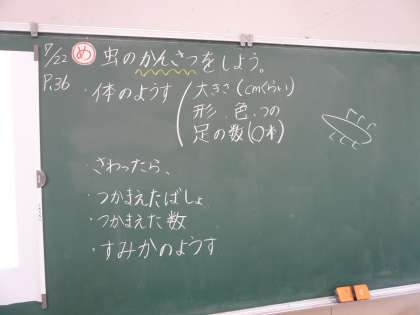 7/22 め 虫のかんさつをしよう。
P.36
・体のようす 大きさ(cmくらい)
形、色、つの
足の数(〇本)
・さわったら、
・つかまえたばしょ
・つかまえた数
・すみかのようす